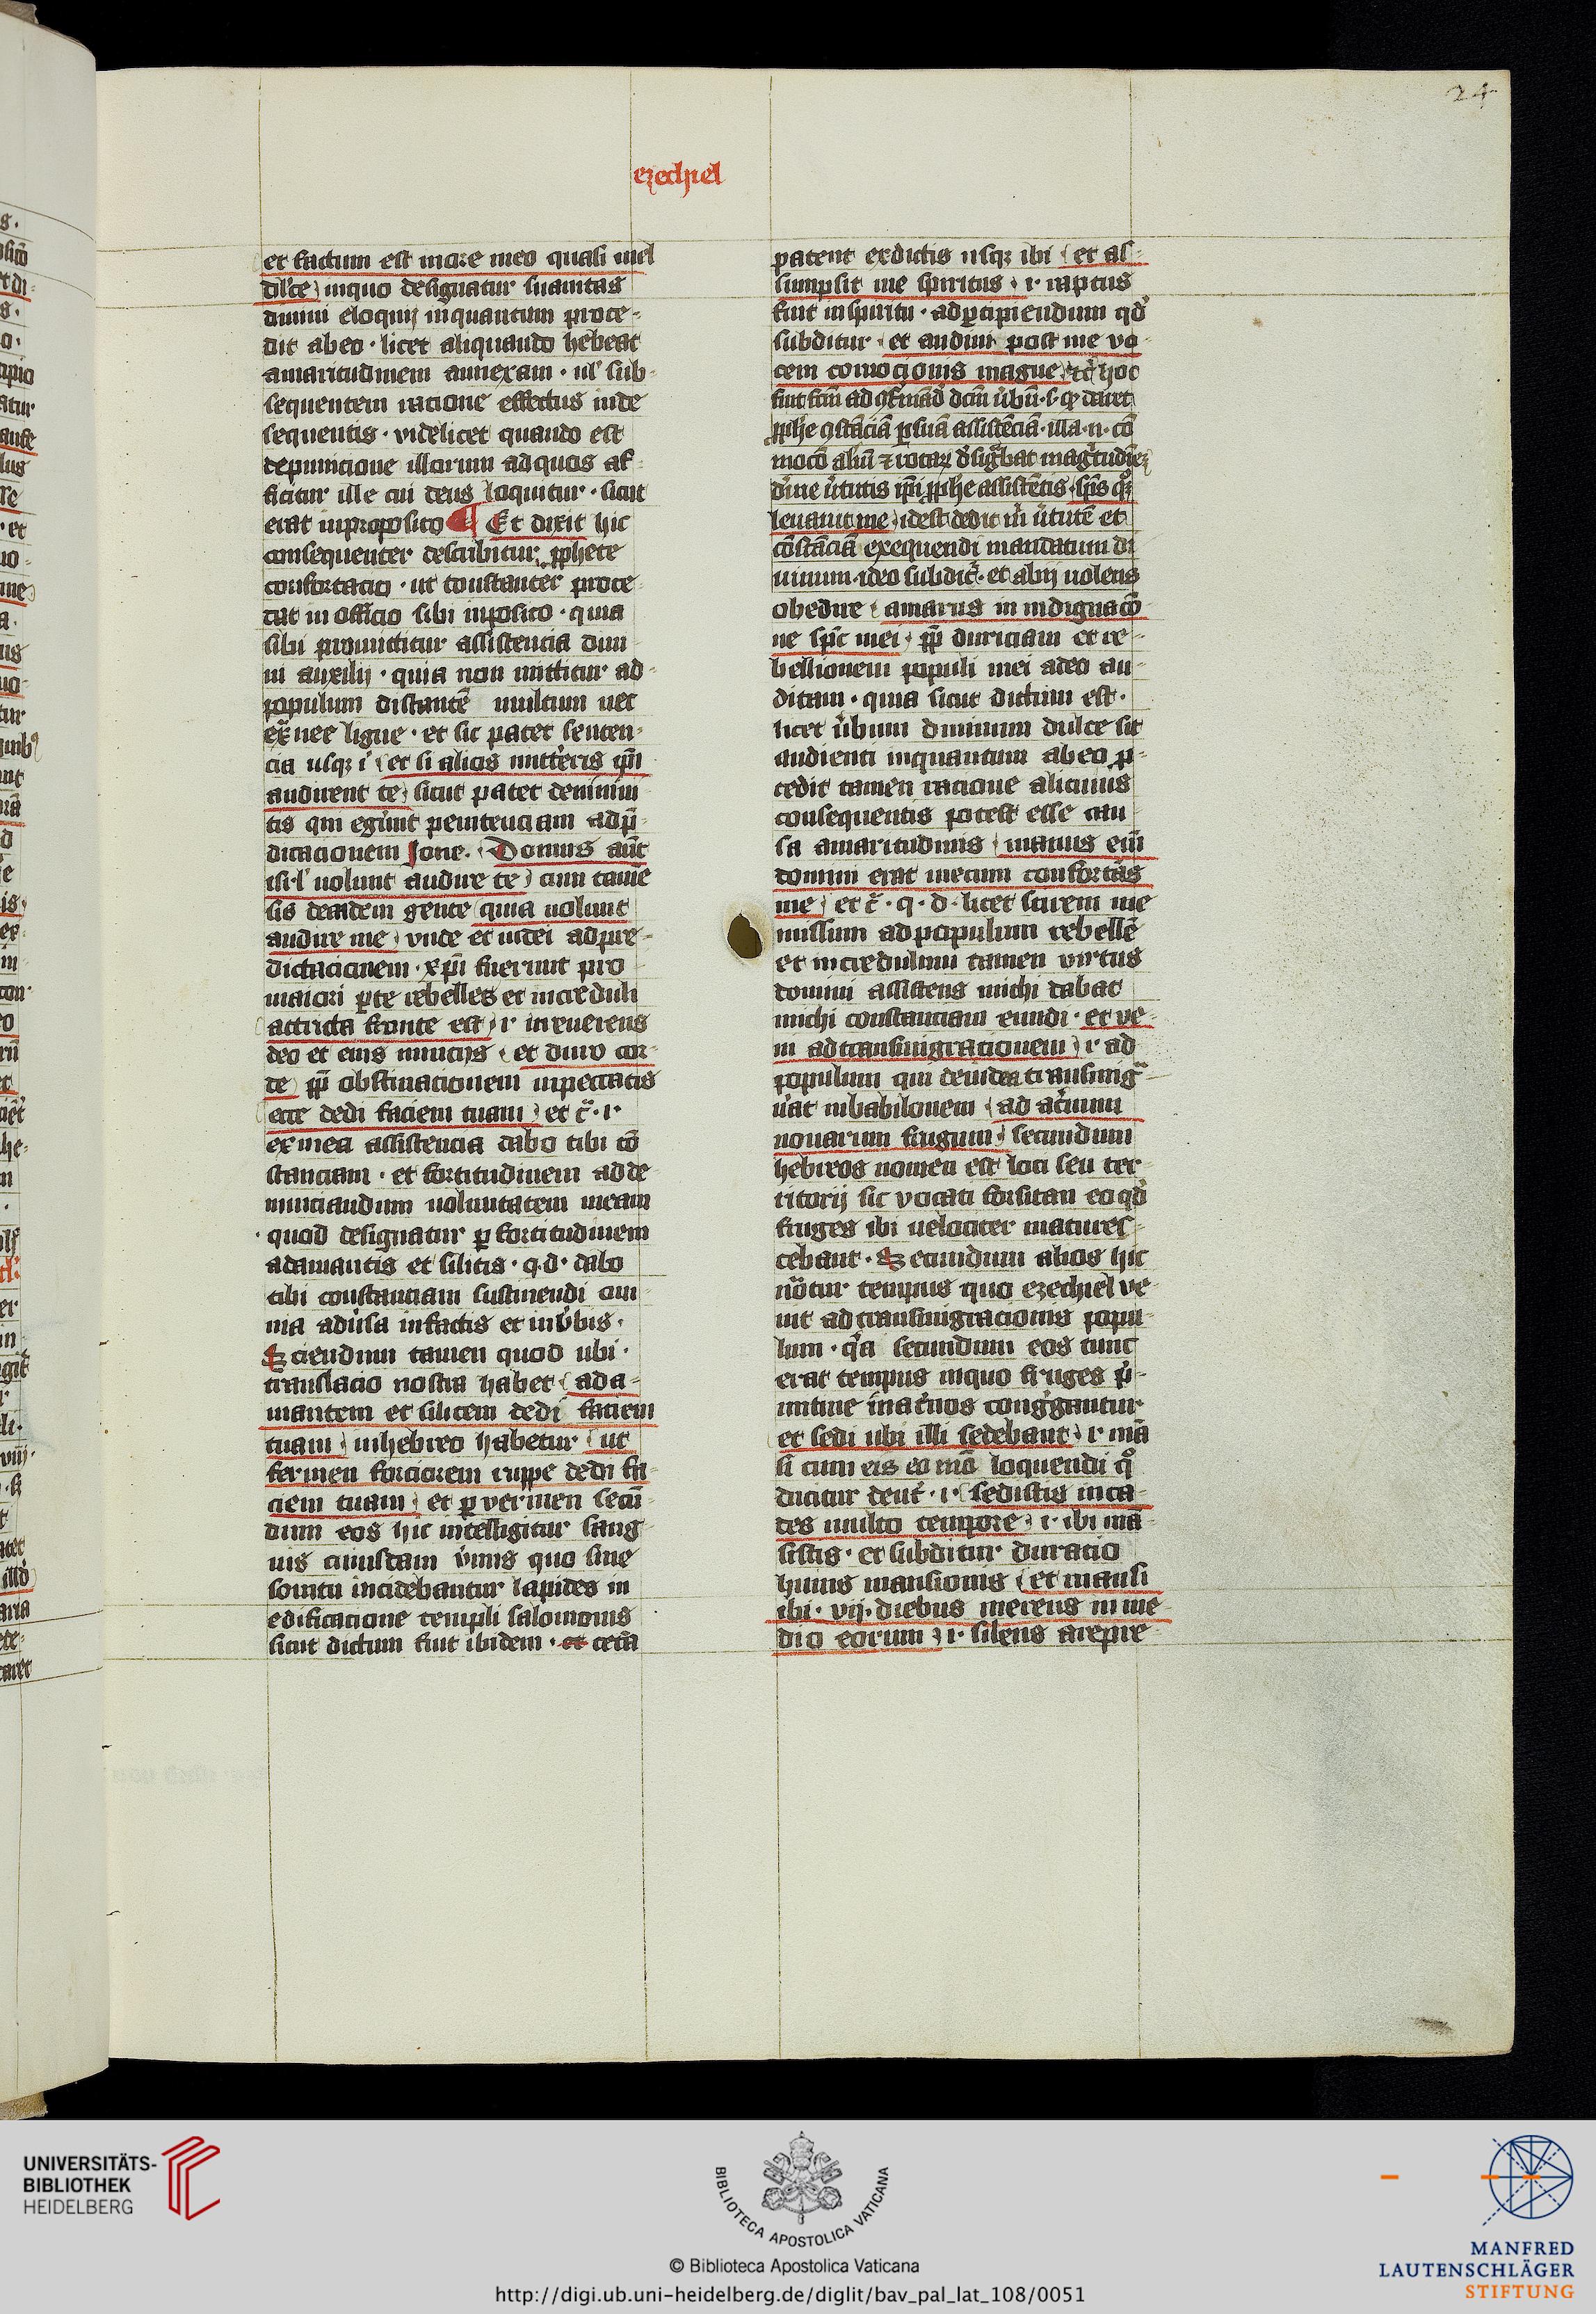 24
ezechiel
et factum est in ore meo quasi mel
dulce in quo designatur suauitas
diuini eloquij inquantum proce-
dit ab eo · licet aliquando hebeat
amaritudinem annexam · ul' sub-
sequentem racione effectus inde
sequentis · videlicet quando est
de punicione illorum ad quos af-
ficitur ille cui deus loquitur · sicut
erat in proposito ¶ Et dixit hic
consequenter describitur pphete
confortacio · ut constanter proce-
dat in officio sibi inposito · quia
sibi promittitur assistencia diui
ni auxilij · quia non mittitur ad
populum distantē multum nec
ex̄ nec ligue · et sic patet senten-
cia usqz i' et si ad alios mitteris ip̄i
audirent te sicut patet de niniui
tis qui egerūt penitenciam ad p̄-
dicacionem Ione · Domus aūt
isrl' nolunt audire te cum tamē
sis de eadem gente quia nolunt
audire me vnde et iudei ad pre-
dictacionem · xp̄i fuerunt pro
maiori parte rebelles et increduli
attrita fronte est .i. inreuerens
deo et eius nuncijs · et duro cor-
de pp̄ obstinacionem in peccatis
ecce dedi faciem tuam et c̄ · i·
ex mea assistencia dabo tibi cō-
stanciam · et fortitudinem ad de-
nunciandum uoluntatem meam
quod designatur per fortitudinem
adamantis et silicis · q· d· dabo
tibi constanciam sustinendi om-
nia aduersa in factis et in verbis ·
Sciendum tamen quod ubi ·
translacio nostra habet ad a-
mantem et silicem dedi faciem
tuam in hebreo habetur ut
fermen forciorem ruppe dedi fa-
ciem tuam et per vermen secū-
dum eos hic intelligitur sang-
uis cuiusdam v̄mis quo sine
sonitu incidebantur lapides in
edificacione templi salomonis
sicut dictum fuit ibidem · et cetera
patent ex dictis usqz ibi et as-
sumpsit me spiritus .i. raptus
fuit in spiritu · ad percipiendum qd'
subditur · et audiui post me vo-
cem comocionis magne et hoc
fuit fcm̄ ad 9firmād' dcm̄ ūbū · s· q' daret
pphe 9stāciā p suā assistēciā · illa · n · cō
mocō aliū et rotarz designabat magtudinē
diuine ūtutis ip̄i pphe assistētis · sp̄s qz
leuauit me idest dedit m̄ ūtutē et
cōstāciā exequendi mandatum di
uinum · ideo subditr̄ · et abij uolens
obedire amarus in indignacō-
ne sp̄c mei pp̄ duriciam et re-
bellionem populi mei adeo au-
ditam · quia sicut dictum est ·
licet ūbum diuinum dulce sit
audienti inquantum ab eo p-
cedit tamen racione alicuius
consequentis potest esse cau
sa amaritudinis manus eni
domini erat mecum confortās
me et c̄ · q · d · licet scirem me
missum ad populum rebellē
et incredulum tamen virtus
domini assistens michi dabat
michi constanciam eundi · et ve-
ni ad transmigracionem .i. ad
populum qui de iudea transmig̅-
ūat in babilonem ad aceruum
nouarum frugum secundum
hebreos nomen est loci seu ter-
ritorij sic vocati forsitan eo qd'
fruges ibi uelociter maturef-
cebant · Secundum alios hic
nōtur tempus quo ezechiel ve-
nit ad transmigracionis popu-
lum · qa secundum eos tunc
erat tempus in quo fruges p'-
mitiue in aceruos congregantur
et sedi ubi illi sedebant .i. mā
si cum eis eo mō loquendi q°
dicitur deut' · i· sedistis in ca-
des multo tempore .i. ibi mā-
sistis · et subditur duracio
huius mansionis et mansi
ibi · vij · diebus merens in me
dio eorum .i. silens a repre
UNIVERSITÄTS-
BIBLIOTHEK
HEIDELBERG
BIBLIOTECA APOSTOLICA VATICANA
© Biblioteca Apostolica Vaticana
http://digi.ub.uni-heidelberg.de/diglit/bav_pal_lat_108/0051
MANFRED
LAUTENSCHLÄGER
STIFTUNG